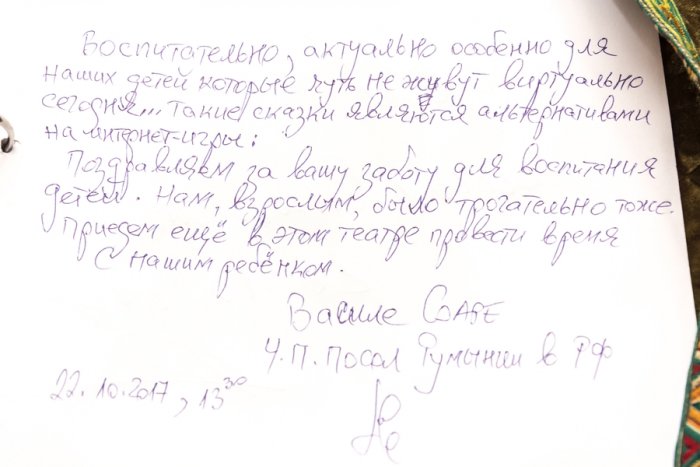 Воспитательно, актуально особенно для
наших детей которые чуть не живут виртуально
сегодня... такие сказки являются альтернативами
на интернет-игры:
Поздравляем за вашу заботу для воспитания
детей. Нам, взрослым, было трогательно тоже.
Приедем ещё в этом театре провести время
с нашим ребёнком.
Василе
Ч.П. посол Румынии в РФ
22.10.2017, 13³⁰